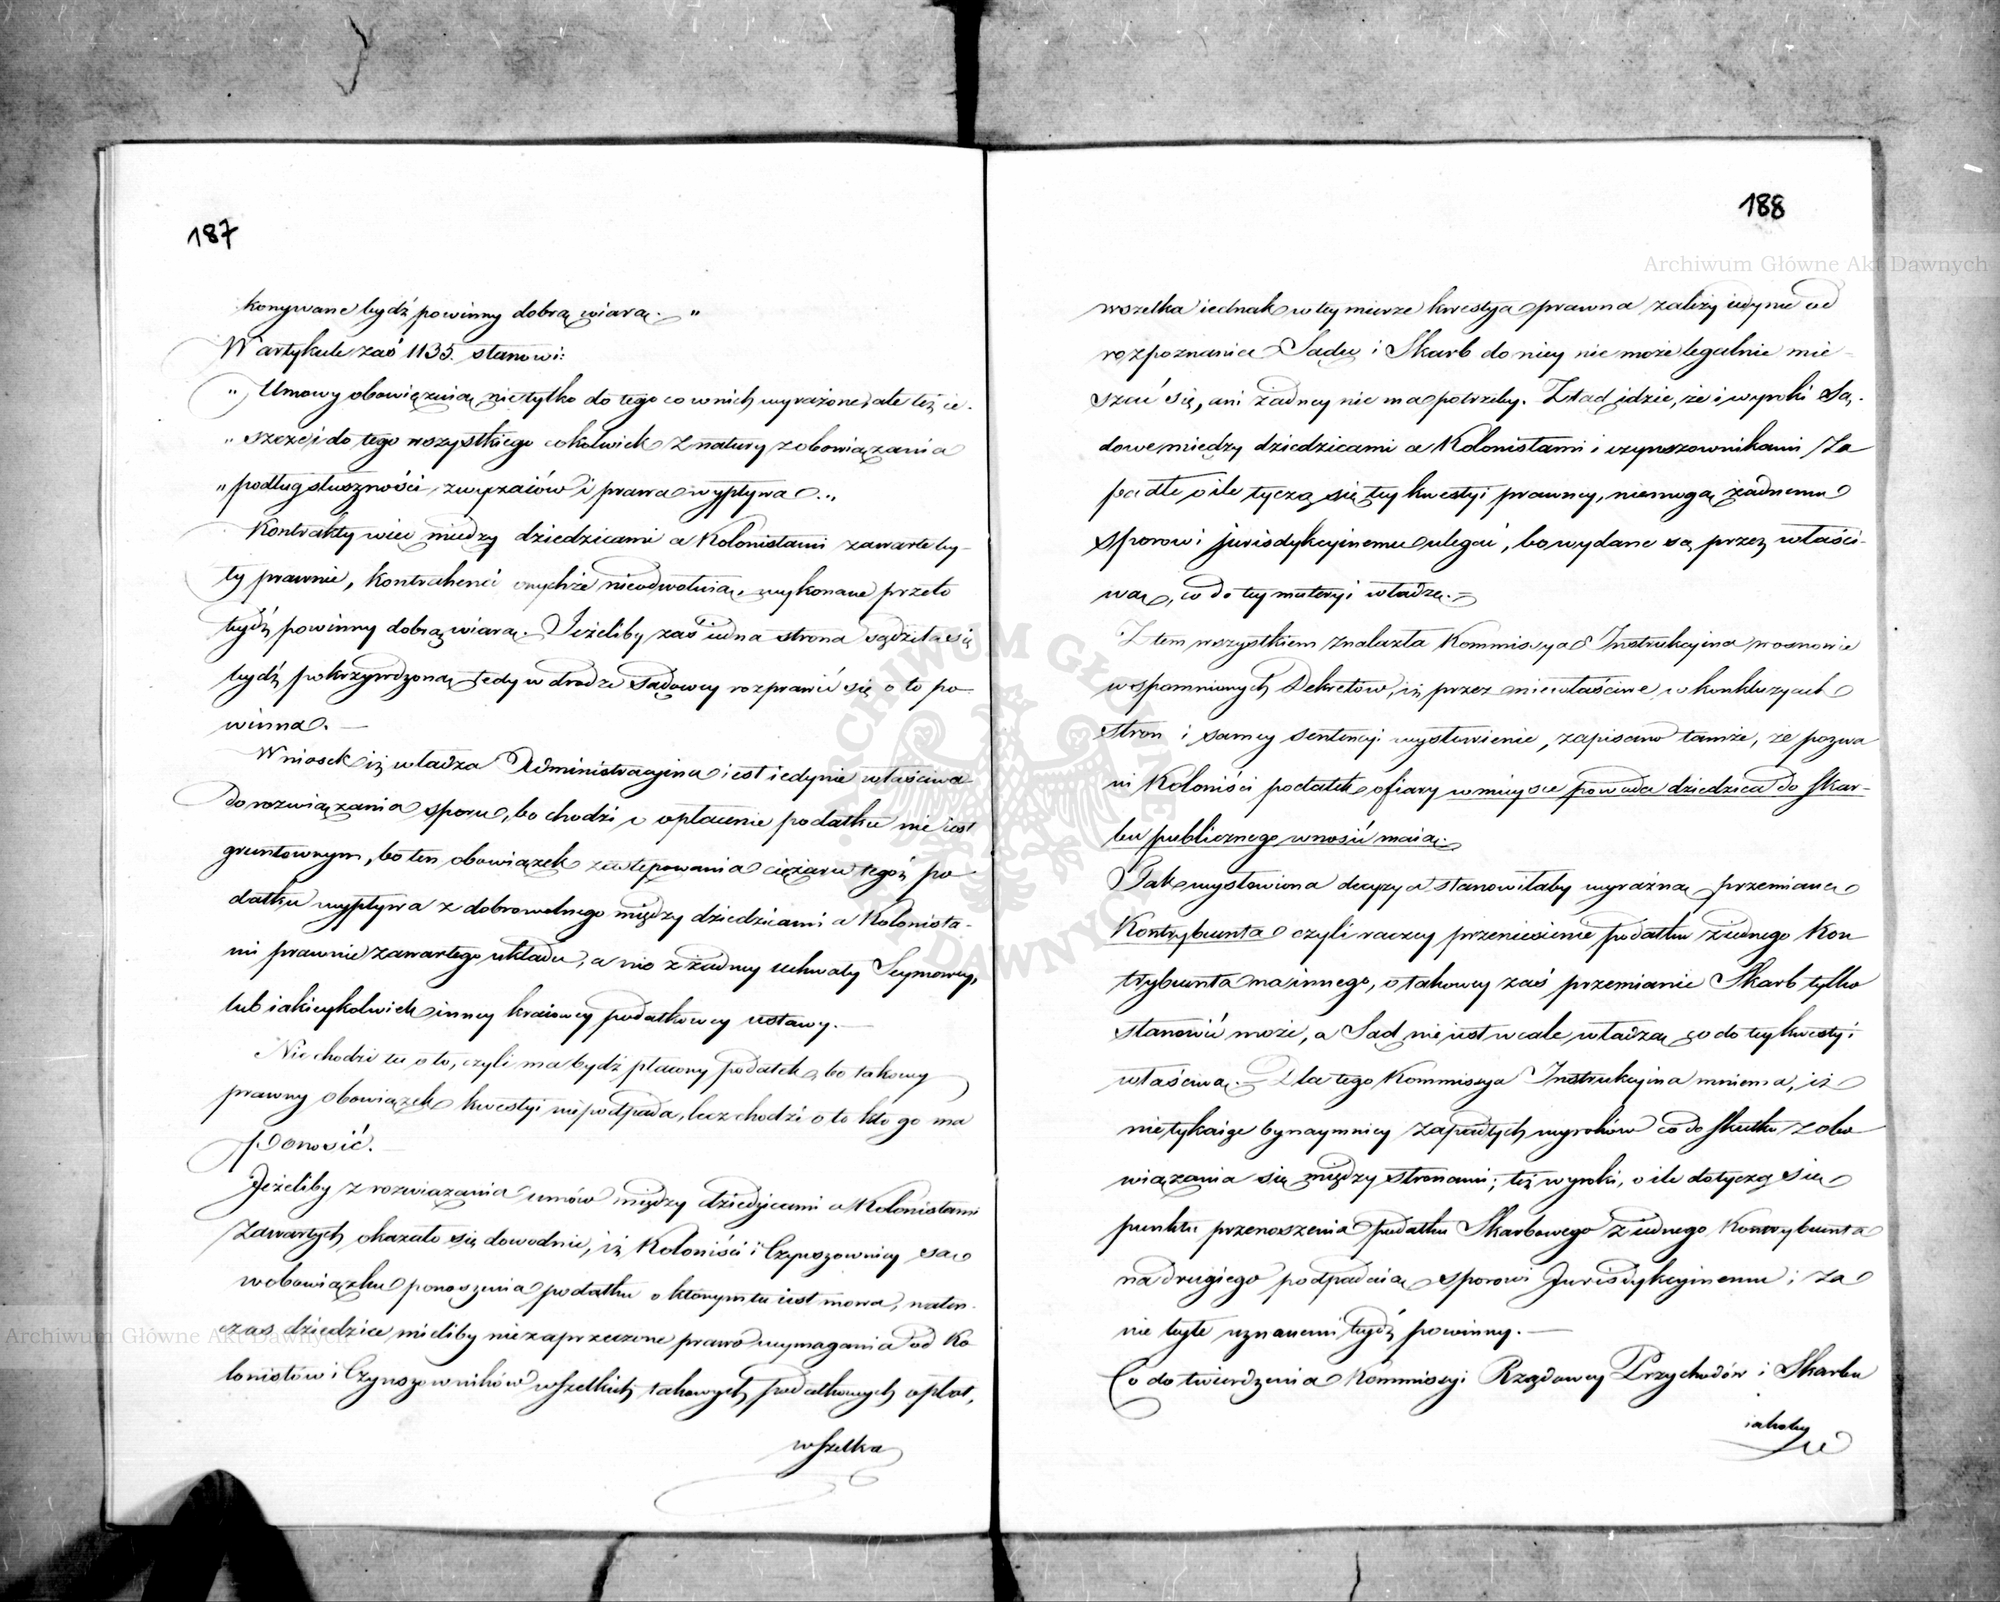 187
konywane bydź powinny dobrą wiarą. „
W artykule zaś 1135. stanowi:
„ Umowy obowięzuią nie tylko do tego co w nich wyrażone, ale też ie-
„ szcze i do tego wszystkiego cokolwiek z natury zobowiązania
„ podług słuszności, zwyczaiów i prawa wypływa. „
Kontrakty więc między dziedzicami a Kolonistami zawarte by-
ły prawnie, Kontrahenci onychże nieodwołuią, wykonane przeto
bydź powinny dobrą wiarą. Jeżeliby zaś iedna strona sądziła się
bydź pokrzywdzoną, tedy w drodze Sądowey rozprawić się o to po-
winna. —
Wniosek iż władza Administracyina iest iedynie właściwa
do rozwiązania sporu, bo chodzi o opłacenie podatku nie iest
gruntownym, bo ten obowiązek zastępowania ciężaru tegoż po-
datku wypływa z dobrowolnego między dziedzicami a Kolonista-
mi prawnie zawartego układu, a nie z żadney uchwały Seymowey,
lub iakieykolwiek inney kraiowey podatkowey ustawy. —
Nie chodzi tu o to, czyli ma bydź płacony podatek, bo takowy
prawny obowiązek kwestyi nie podpada, lecz chodzi o to kto go ma
ponosić. —
Jeżeliby z rozwiązania umów między dziedzicami a Kolonistami
zawartych okazało się dowodnie, iż Koloniści i Czynszownicy są
w obowiązku ponoszenia podatku o którym tu iest mowa, naten-
czas dziedzice mieliby niezaprzeczone prawo wymagania od Ko-
lonistów i Czynszowników wszelkich takowych podatkowych opłat,
wszelka
188
wszelka iednak w tey mierze kwestya prawna zależy iedynie od
rozpoznania Sądu i Skarb do niey nie może legalnie mie-
szać się, ani żadney nie ma potrzeby. Ztąd idzie, że i wyroki Są-
dowe między dziedzicami a Kolonistami i czynszownikami za
padłe o ile tyczą się tey kwestyi prawney, niemogą żadnemu
sporowi jurisdykcyinemu ulegać, bo wydane są przez właści-
wą, co do tey materyi władzę. —
Z tem wszystkiem znalazła Kommissya Instrukcyina w osnowie
wspomnionych Dekretów, iż przez niewłaściwe w konkluzyach
stron i samey sentencyi wysłowienie, zapisano tamże, że pozwa
ni Koloniści podatek ofiary w mieysce powoda dziedzica do Skar-
bu publicznego wnosić maią.
Tak wysłowiona decyzya stanowiłaby wyraźną przemianę
Kontrybuenta czyli raczey przeniesienie podatku z iednego Kon
trybuenta na innego, o takowey zaś przemianie Skarb tylko
stanowić może, a Sąd nie iest wcale władzą co do tey kwestyi
właściwą. — Dla tego Kommissya Instrukcyina mniema, iż
nie tykaiąc bynaymniey zapadłych wyroków co do skutku zobo
wiązania się między stronami; też wyroki, o ile dotyczą się
punktu przenoszenia podatku Skarbowego z iednego Kontrybuenta
na drugiego podpadaią sporowi Jurisdykcyinemu i za
nie byłe uznanemi bydź powinny. —
Co do twierdzenia Kommissyi Rządowey Przychodów i Skarbu
iakoby